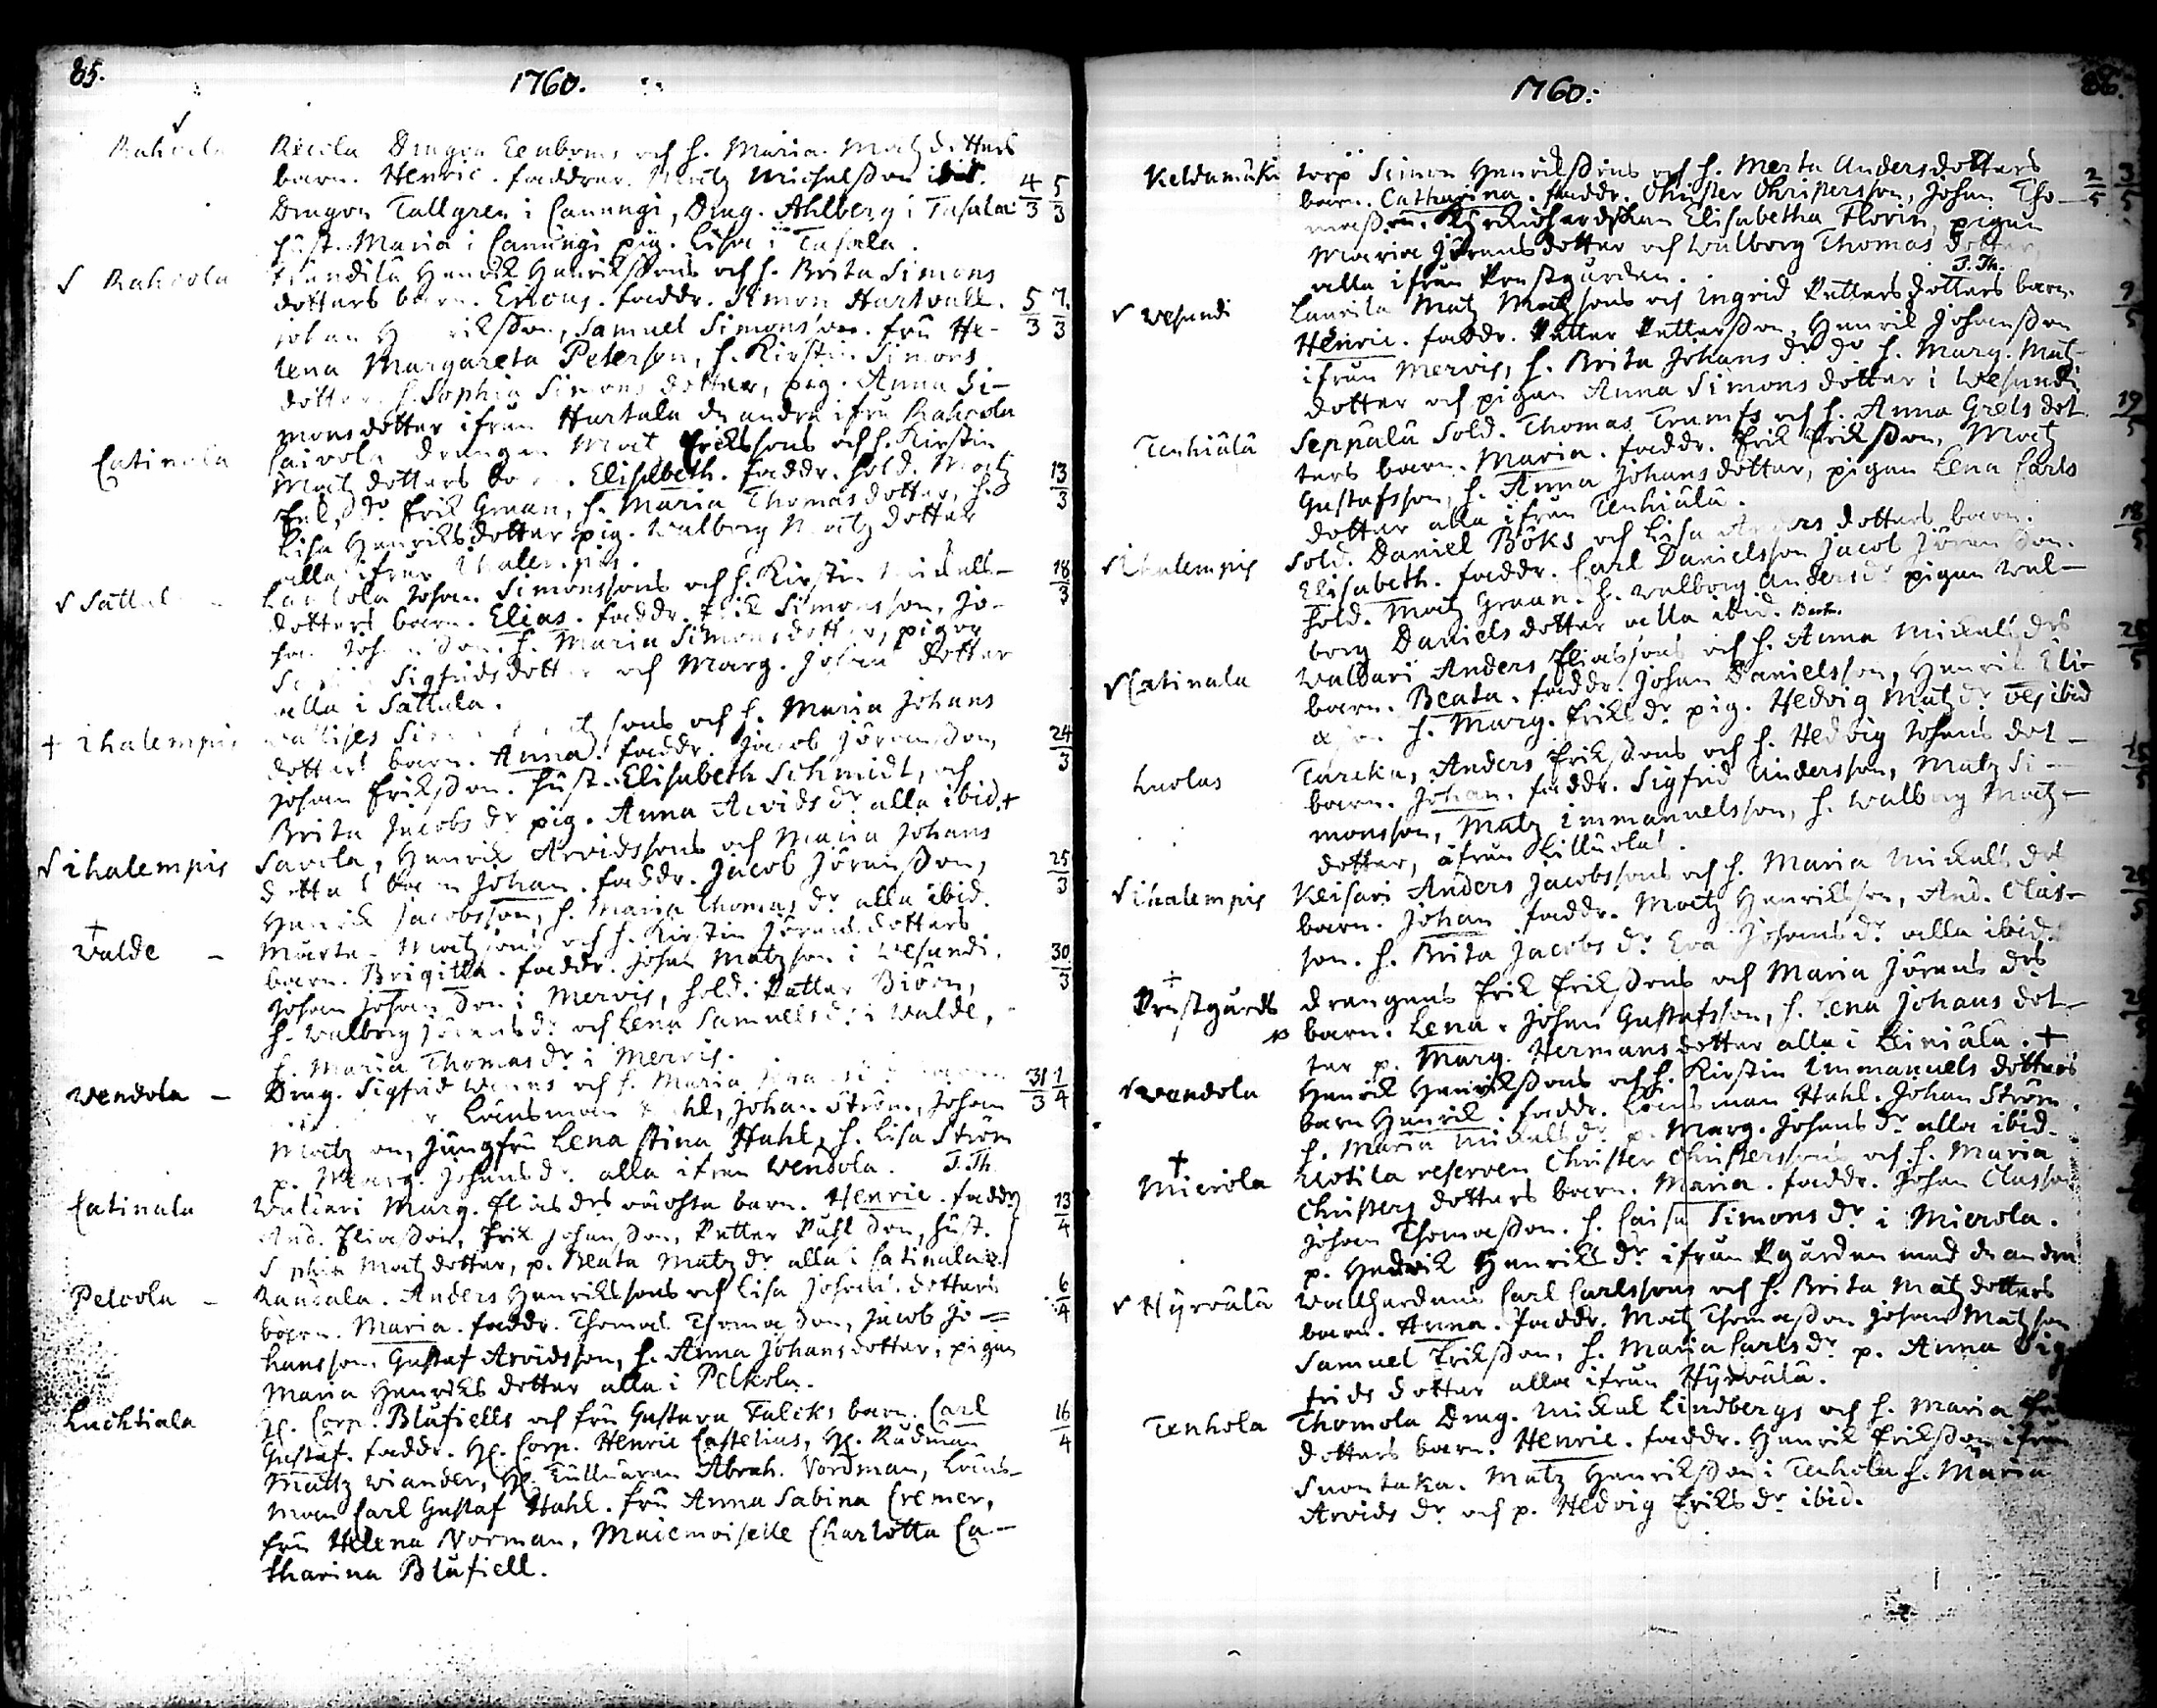 85.
1760.
Rahcola Ricola Dragon Eenboms och h. Maria Matz dotters
barn. Henric. faddrar. Matz Michelsson ibid. 4/3 5/3
Dragon Tallgren i Canungi, Drag. Ahlberg i Tasala
hust. Maria i Canungi pig. Lisa i Tasala.
Rahcola Henrik Henrikssons och h. Brita Simons
dotters barn. Ericus. faddr. Simon Hartvall. 5/3 7/3
Johan H riksson, Samuel Simonsson. fru He-
lena Margareta Peterson, h. Kirstin Simons
dotter. h. Sophia Simons dotter, pig. Anna Si-
monsdotter ifrån Hartala de andra ifrå Rahcola
Catinala Caivola drängen Matz Erikssons och h. Kirstin
Matz dotters barn. Elisabeth. faddr. sold. Matz 13/3
Eek, do Erik Graan, h. Maria Thomas dotter, h.
Lisa Henriksdotter pig. Walborg Matz dotter
alla ifrån ihalempis.
Sattula Johan Simonssons och h. Kirstin Mickels- 18/3
dotters barn. Elias. faddr. Erik Simonsson, Jo-
han Johansson. h. Maria Simonsdotter, pigor
Sigfridsdotter och Marg. Johans dotter
alla i Sattula.
+ ihalempis Matz sons och h. Maria Johans
dotters barn. Anna. faddr. Jacob Jöransson 24/3
Johan Eriksson. hust. Elisabeth Schmidt, och
Brita Jacobs dr pig. Anna Arvids dr alla ibid. +
ihalempis Savela, Henrik Arvidssons och Maria Johans
dotters barn Johan. faddr. Jacob Jöransson, 25/3
Henrik Jacobsson, h. Maria Thomas dr alla ibid.
+ Walde - Marta Matz sons och h. Kirstin Jörans dotters
barn. Brigitta. faddr. Johan Matzson i Wesundi. 30/3
Johan Johansson i Mervis, sold. Petter Biörn,
h. Walborg Jörans dr och Lena Samuels dr i Walde,
h. Maria Thomas dr i Mervis.
Wendola - Drag. Sigfrid Wenns och h. Maria 31/3 1/4
Länsman Hahl, Johan Ström, Johan
Matzson, Jungfru Lena Stina Hahl, h. Lisa Ström
p. Marg. Johans dr. alla ifrån Wendola. T. Th.
Catinala Waldari Marg. Elias drs oächta barn. Henric. faddr. 13/4
And. Eliasson, Erik Johansson, Petter Påhlsson, hust.
Sophia Matz dotter, p. Beata Matz dr alla i Catinala.
Pelcola - Rausala. Anders Henrikssons och Lisa Johans dotters 6/4
barn. Maria. faddr. Thomas Thomasson, Jacob Jo=
hansson, Gustaf Arvidsson, h. Anna Johansdotter, pigan
Maria Henriks dotter alla i Pelkola.
Luchtiala H. Corp. Blåfiells och fru Gustava Falcks barn. Carl 16/4
Gustaf. faddr. H. Corp. Henric Castelius, H. Rådman
Mattz Wiander, H. Tullnären Abrah. Nordman, Läns-
man Carl Gustaf Hahl. fru Anna Sabina Cremer,
fru Helena Norman, Mademoiselle Charlotta Ca-
tharina Blåfiell.
86.
1760:
Keldamäki torp Simon Henrikssons och h. Merta Anders dotters
barn. Catharina. faddr. Christer Christersson, Johan Tho- 2/5 3/5
masson. Kyrkioherdskan Elisabetha Florin, pigan
Maria Jörans dotter och Walborg Thomas dotter,
alla ifrån Prestgården. T. Th.
Wesundi Laurila Matz Matzsons och Ingrid Petters dotters barn. 9/5
Henric. faddr. Petter Pettersson, Henrik Johansson
ifrån Mervis, h. Brita Johans dr do h. Marg. Matz
dotter och pigan Anna Simons dotter i Wesundi
Tenhiälä Seppälä Sold. Thomas Trumfs och h. Anna Grels dot 19/5
ters barn. Maria. faddr. Erik Eriksson, Matz
Gustafsson, h. Anna Johans dotter, pigan Lena Carls
dotter alla ifrån Tenhiälä.
ihalempis Sold. Daniel Böks och Lisa Anders dotters barn. 18/5
Elisabeth. faddr. Carl Danielsson Jacob Jöransson.
sold. Matz Graan. h. Walborg Anders dr pigan Wal-
borg Daniels dotter alla ibid.
Catinala Waldari Anders Eliassons och h. Anna Mickels drs
barn. Beata. faddr. Johan Danielsson, Henrik Eli-
asson h. Marg. Eriks dr pig. Hedvig Matz dr ibid
Luolas Tareka, Anders Erikssons och h. Hedvig Johans dot-
barn. Johan. faddr. Sigfrid Andersson, Matz Si-
monsson, Matz Immanuelsson, h. Walborg Matz-
dotter, ifrån Lilluolas.
ihalempis Keisari Anders Jacobssons och h. Maria Mickels dr
barn. Johan faddr. Matz Henriksson, And. Clas-
son. h. Brita Jacobs dr Eva Johans dr alla ibid.
+ Prestgårds drängens Erik Erikssons och Maria Jörans drs
barn. Lena. Johan Gustafsson, h. Lena Johans dot-
ter p. Marg. Hermans dotter alla i Liniälä. +
Wendola Henrik Henrikssons och h. Kirstin Immanuels dotters
barn Henrik. faddr. Länsman Hahl. Johan Ström.
h. Maria Mickels dr p. Marg. Johans dr alla ibid.
+ Mierola Uotila reserven Christer Christerssons och h. Maria
Christers dotters barn. Maria. faddr. Johan Classon
Johan Thomasson. h. Caisa Simons dr i Mierola.
p. Hedvik Henriks dr ifrån Pgården med de andra
Hyrvälä Wallhardens Carl Carlssons och h. Brita Matz dotters
barn. Anna. faddr. Matz Thomasson Johan Matzson
Samuel Eriksson, h. Maria Carls dr p. Anna Sig
frids dotter alla ifrån Hyrvälä.
Tenhola Thomola Drag. Mickel Lindbergs och h. Maria
dotters barn. Henric. faddr. Henrik Eriksson ifrån
Suontaka. Matz Henriksson i Tenhola h. Maria
Arvids dr och p. Hedvig Eriks dr ibid.